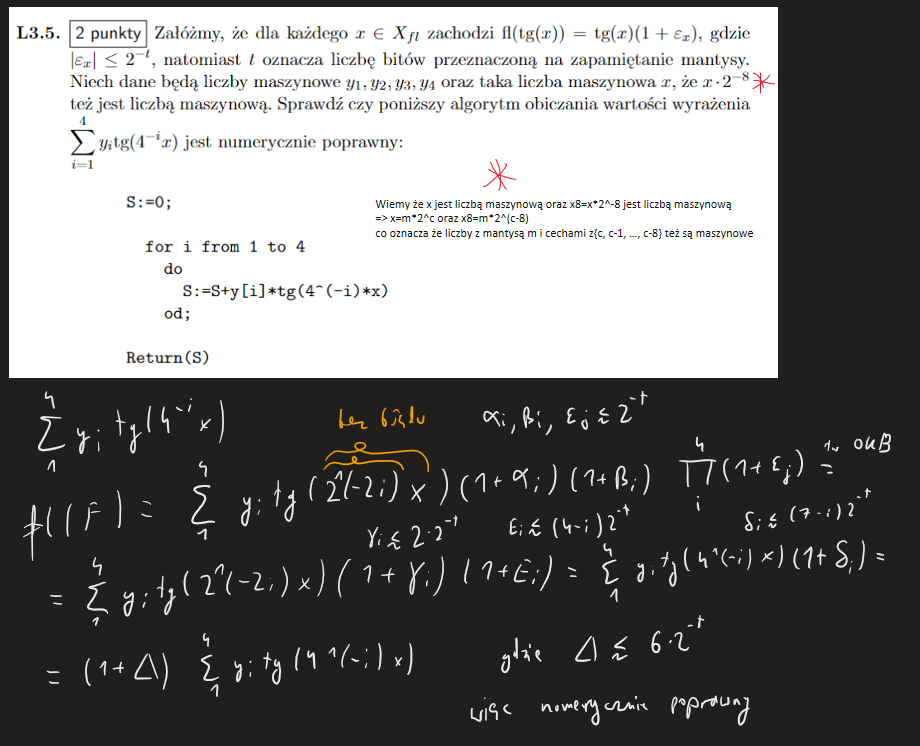 L3.5. 2 punkty Załóżmy, że dla każdego x ∈ X_fl zachodzi fl(tg(x)) = tg(x)(1 + ε_x), gdzie
|ε_x| ≤ 2^−t, natomiast t oznacza liczbę bitów przeznaczoną na zapamiętanie mantysy.
Niech dane będą liczby maszynowe y_1, y_2, y_3, y_4 oraz taka liczba maszynowa x, że x · 2^−8
też jest liczbą maszynową. Sprawdź czy poniższy algorytm obiczania wartości wyrażenia
∑_{i=1}^{4} y_i tg(4^−i x) jest numerycznie poprawny:
S:=0;
Wiemy że x jest liczbą maszynową oraz x8=x*2^-8 jest liczbą maszynową
=> x=m*2^c oraz x8=m*2^(c-8)
co oznacza że liczby z mantysą m i cechami z{c, c-1, ..., c-8} też są maszynowe
for i from 1 to 4
do
S:=S+y[i]*tg(4^(-i)*x)
od;
Return(S)
∑_1^4 y_i tg(4^−i x)
bez błędu
α_i, β_i, ε_j ≲ 2^−t
fl(F) = ∑_1^4 y_i tg(2^(-2i) x)(1+α_i)(1+β_i) ∏_i^4 (1+ε_j) = tw OKB
γ_i ≲ 2·2^−t
E_i ≲ (4-i)2^−t
δ_i ≲ (7-i)2^−t
= ∑_1^4 y_i tg(2^(-2i) x)(1+γ_i)(1+E_i) = ∑_1^4 y_i tg(4^(-i) x)(1+δ_i) =
= (1+Δ) ∑_1^4 y_i tg(4^(-i) x) gdzie Δ ≲ 6·2^−t
więc numerycznie poprawny